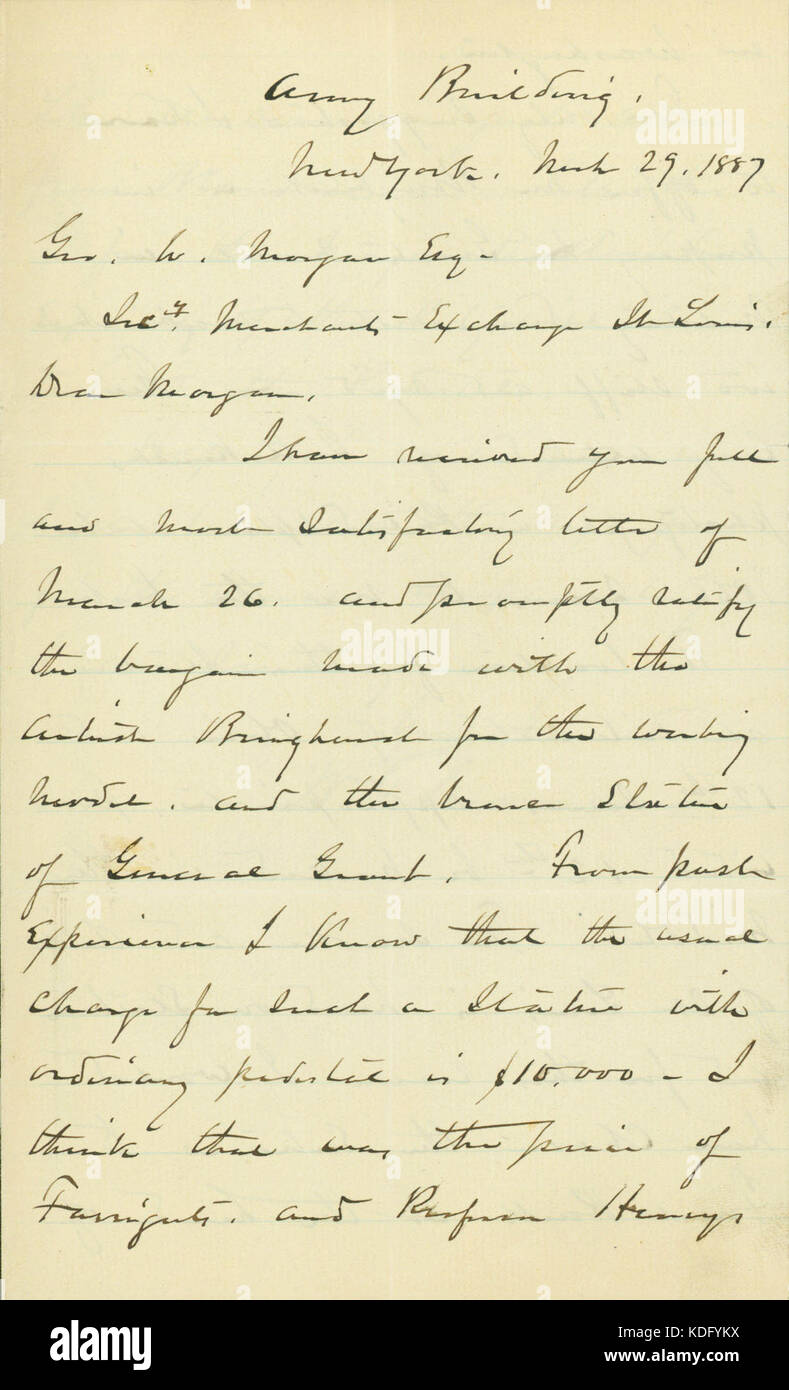 Army Building,
New York, Mch 29, 1887
Geo. W. Morgan Esq-
Secy. Merchants Exchange St Louis.
Dear Morgan,
I have received your full
and most satisfactory letter of
March 26. and promptly ratify
the bargain made with the
Artist Bringhurst for the working
model, and the bronze Statue
of General Grant. From past
Experience I know that the usual
charge for such a Statue with
ordinary pedestal is $10,000 - I
think that was the price of
Farraguts. and Henrys
alamy stock photo
alamy
Image ID: KDFYKX
www.alamy.com